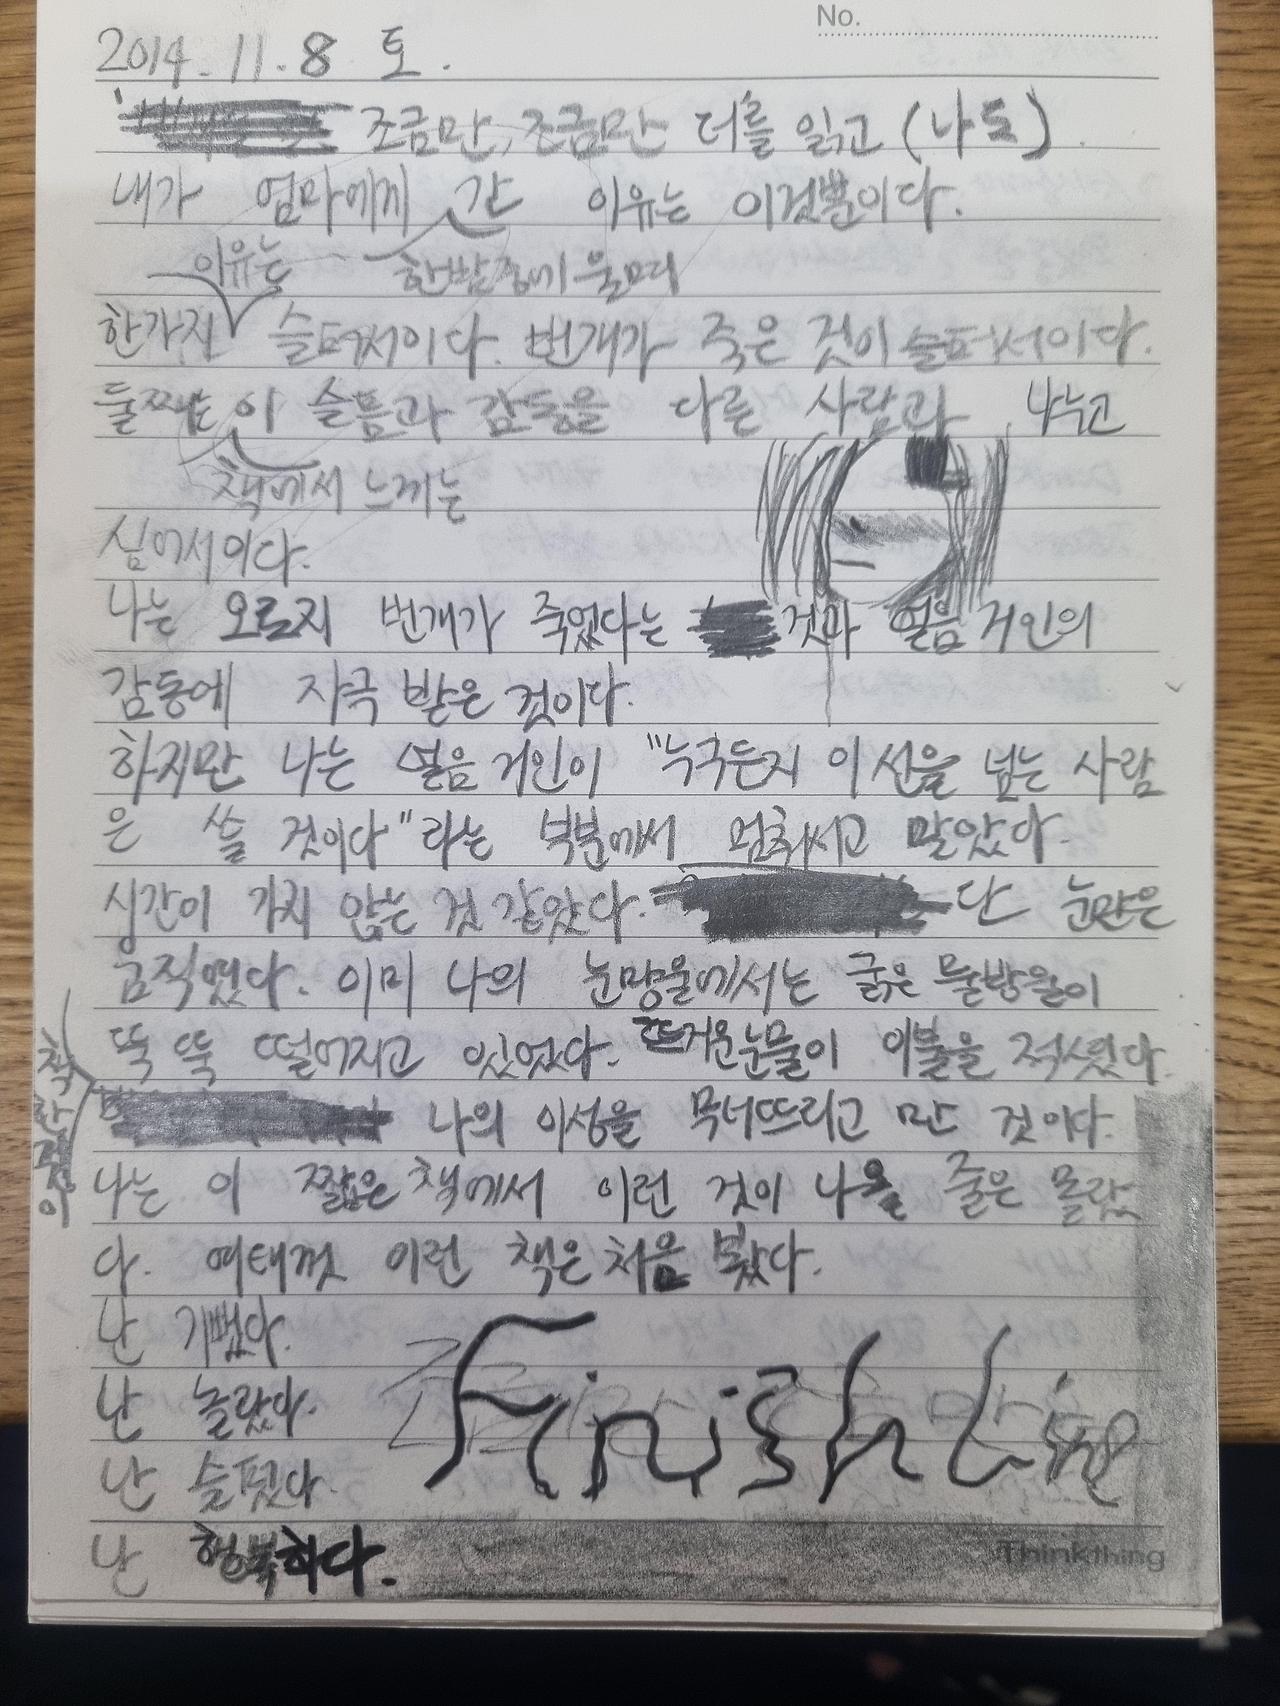 No.
2014. 11. 8 토.
조금만, 조금만 더를 읽고 (나도).
내가 엄마에게 간 이유는 이것뿐이다.
이유는 한밤중에 울며
한가지 슬퍼서이다. 번개가 죽은 것이 슬퍼서이다.
둘째는 이 슬픔과 감동을 다른 사람과 나누고
책에서 느끼는
싶어서이다.
나는 오로지 번개가 죽었다는 것과 얼음 거인의
감동에 자극 받은 것이다.
하지만 나는 얼음 거인이 "누구든지 이 선을 넘는 사람
은 쏠 것이다"라는 부분에서 멈춰서고 말았다.
시간이 가지 않는 것 같았다. 단 눈만은
움직였다. 이미 나의 눈망울에서는 굵은 물방울이
뚝 뚝 떨어지고 있었다. 뜨거운 눈물이 이불을 적셨다.
책 한권이
나의 이성을 무너뜨리고 만 것이다.
나는 이 짧은 책에서 이런 것이 나올 줄은 몰랐
다. 여태껏 이런 책은 처음 봤다.
난 기뻤다.
난 놀랐다.
난 슬펐다.
난 행복하다.
Finish Line
Thinkthing